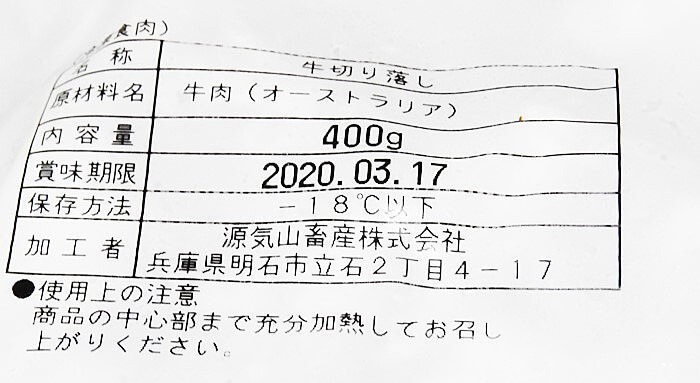 食肉)
名称 牛切り落し
原材料名 牛肉(オーストラリア)
内容量 400g
賞味期限 2020.03.17
保存方法 -18℃以下
加工者 源気山畜産株式会社
兵庫県明石市立石2丁目4-17
●使用上の注意
商品の中心部まで充分加熱してお召し
上がりください。